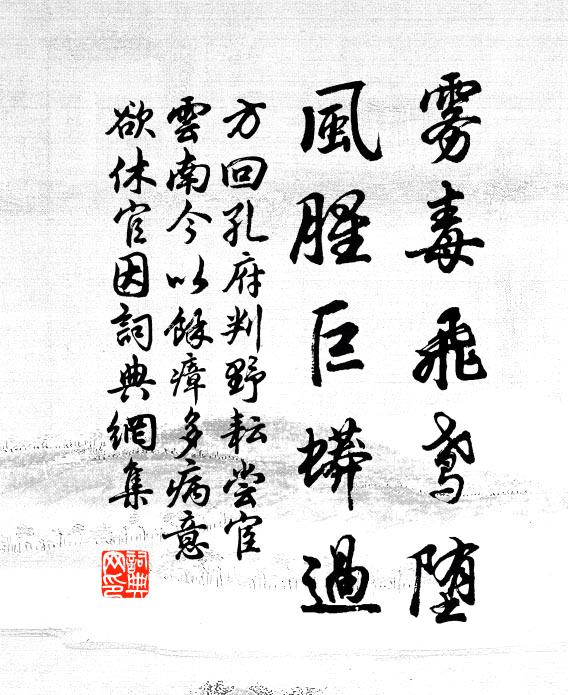 雾毒飛鳶堕
風腥巨蟒過
方回孔府判野耘尝宦
雲南今以餘瘴多病意
欲休官因詞典網集
詞典
网印